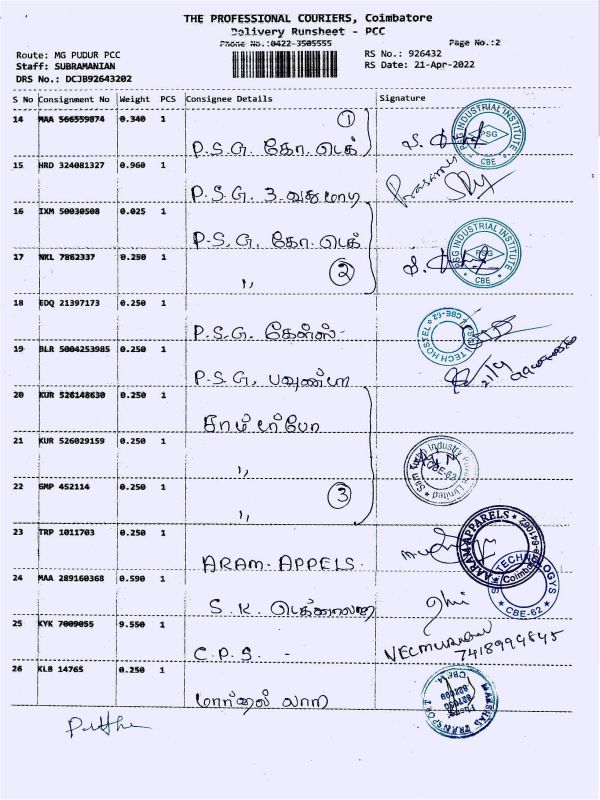 THE PROFESSIONAL COURIERS, Coimbatore
Delivery Runsheet - PCC
Phone No.:0422-3505555
Page No.:2
Route: MG PUDUR PCC
RS No.: 926432
Staff: SUBRAMANIAN
RS Date: 21-Apr-2022
DRS No.: DCJB92643202
S No Consignment No Weight PCS Consignee Details Signature
14 MAA 566559874 0.340 1
1
P.S.G. கோ. டெக்
PSG INDUSTRIAL INSTITUTE
PSG
CBE
15 HRD 324081327 0.960 1
P.S.G. 3.வது மாடி
16 IXM 50030508 0.025 1
P.S.G. கோ. டெக்
PSG INDUSTRIAL INSTITUTE
PSG
CBE
17 NKL 7862337 0.250 1
,, 2
18 EDQ 21397173 0.250 1
P.S.G. கேள்ஸ் -
TECH HOSTEL
19 BLR 5004253985 0.250 1
P.S.G. பவுண்டரி
21/4
20 KUR 526148630 0.250 1
21 KUR 526029159 0.250 1
,,
Industry Private Limited
CBE-62
22 GMP 452114 0.250 1
3
,,
23 TRP 1011703 0.250 1
ARAM-APPELS.
AARAM APPARELS
Coimbatore-641062
24 MAA 289160368 0.590 1
S.K.
CBE-62
25 KYK 7009055 9.550 1
C.P.S. -
VELMURUGAN
7418994845
26 KLB 14765 0.250 1
TRANSPORT